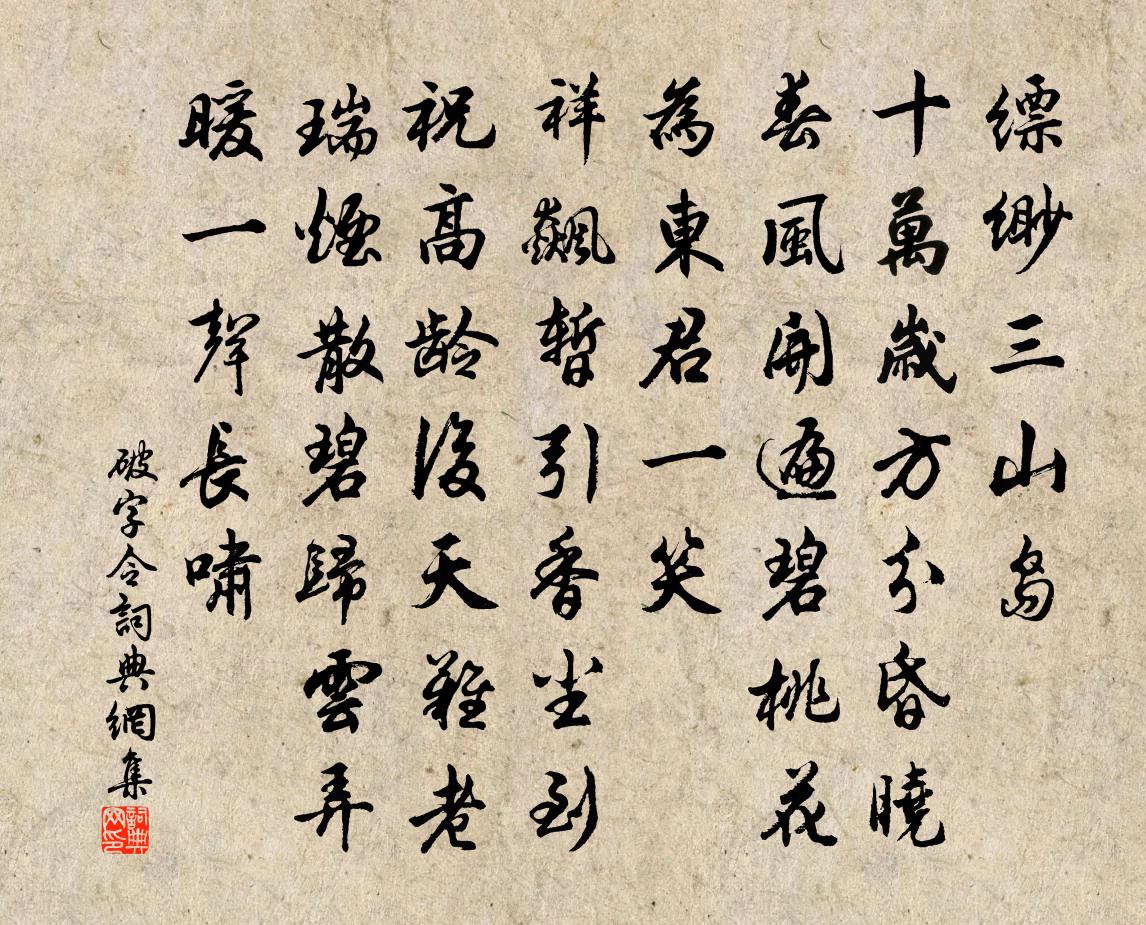 縹緲三山島
十萬歲方分昏曉
春風開遍碧桃花
為東君一笑
祥飆暫引香尘到
祝高齡後天難老
瑞煙散碧歸雲弄
暖一聲長嘯
破字令詞典網集
詞典网印